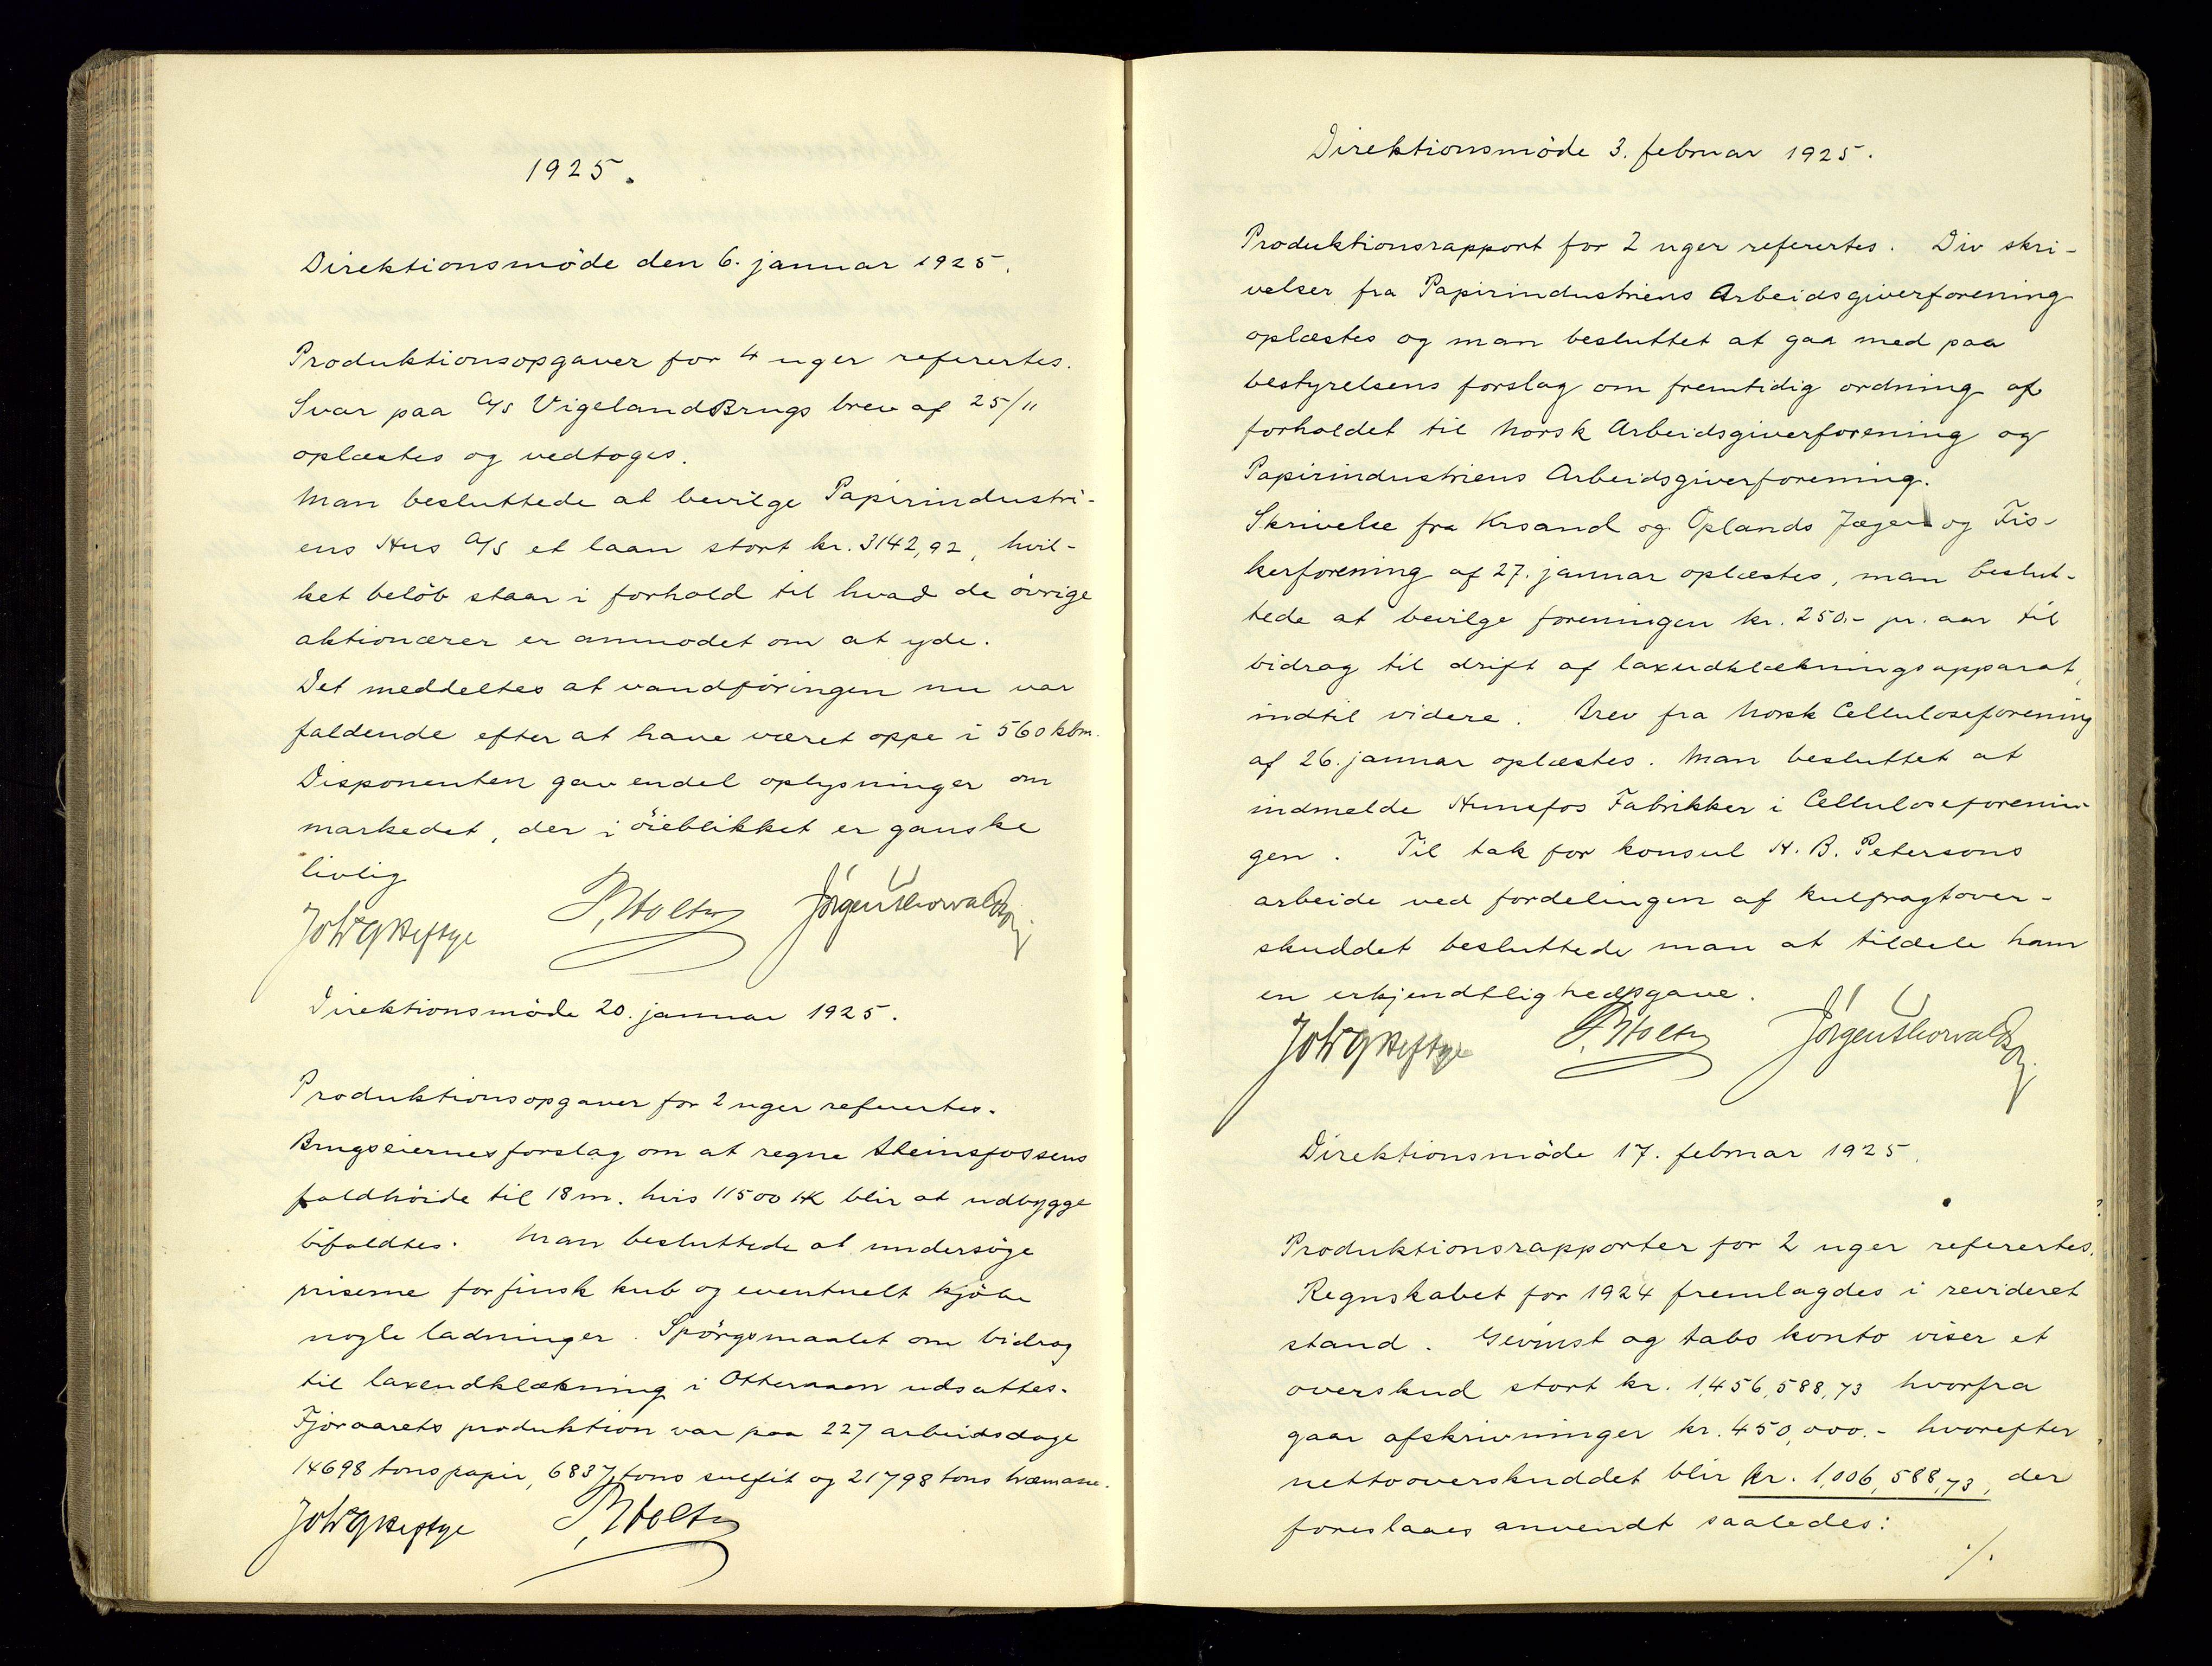 1925.
Direktionsmöde den 6. januar 1925.
Produktionsopgaver for 4 uger refertes.
Svar paa A/S Vigelands Brugs brev af 25/11
oplæstes og vedtoges.
Man besluttede at bevilge Papirindustri-
ens Hus A/S et laan stort kr. 3142,92, hvil-
ket belöb staar i forhold til hvad de övrige
aktionærer er anmodet om at yde.
Det meddeltes at vandföringen nu var
faldende efter at have været oppe i 560 kbm.
Disponenten gav endel oplysninger om
markedet, der i öieblikket er ganske
livlig
Joh Heftye P. Holtz Jörgen Thorvaldson
Direktionsmöde 20. januar 1925.
Produktionsopgaver for 2 uger refertes.
Brugseiernes forslag om at regne Steinsfossens
faldhöide til 18 m. hvis 11500 HK blir at udbygge
bifaldtes. Man besluttede at undersöge
priserne for finsk kub og eventuelt kjöbe
nogle ladninger. Spörgsmaalet om bidrag
til laxeudklækning i Otteraaen udsattes.
Fjoraarets produktion var paa 227 arbeidsdage
14698 tons papir, 6837 tons sulfit og 21798 tons træmasse.
Joh Heftye P. Holtz
Direktionsmöde 3. februar 1925.
Produktionsrapport for 2 uger refertes. Div skri-
velser fra Papirindustriens Arbeidsgiverforening
oplæstes og man besluttet at gaa med paa
bestyrelsens forslag om fremtidig ordning af
forholdet til Norsk Arbeidsgiverforening og
Papirindustriens Arbeidsgiverforening.
Skrivelse fra Krsand og Oplands Jæger og Fis-
kerforening af 27. januar oplæstes, man beslut-
tede at bevilge foreningen kr. 250.- pr. aar til
bidrag til drift af laxudklækningsapparat,
indtil videre. Brev fra Norsk Celluloseforening
af 26. januar oplæstes. Man besluttet at
indmelde Hunsfos Fabrikker i Celluloseforenin-
gen. Til tak for konsul H. B. Petersons
arbeide ved fordelingen af kulfragtover-
skuddet besluttede man at tildele ham
en erkjendtlighedsgave.
Joh Heftye P. Holtz Jörgen Thorvaldson
Direktionsmöde 17. februar 1925.
Produktionsrapporter for 2 uger refertes.
Regnskabet for 1924 fremlagdes i revideret
stand. Gevinst og tabs konto viser et
overskud stort kr. 1,456,588,73 hvorfra
gaar afskrivninger kr. 450,000.- hvorefter
nettooverskuddet blir kr. 1,006,588,73, der
foreslaaes anvendt saaledes:
./.